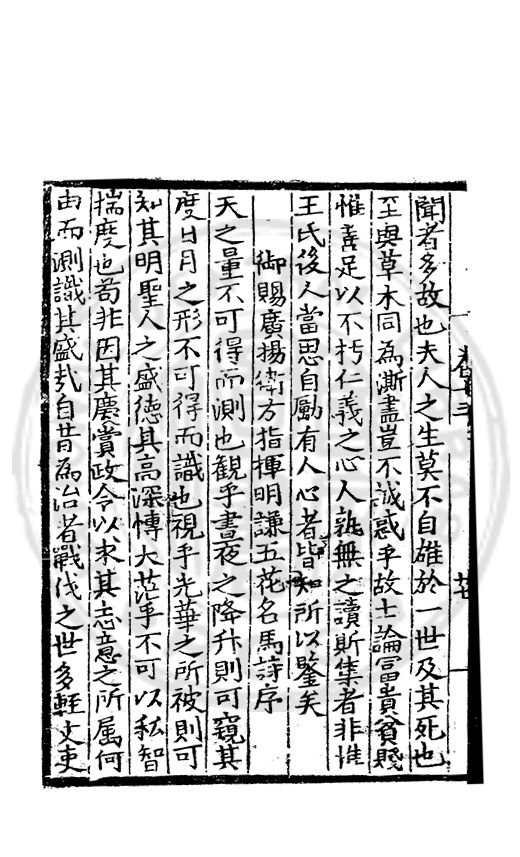 聞者多故也夫人之生莫不自雄於一世及其死也
至與草木同為澌盡豈不誠惑乎故士論富貴貧賤
惟善足以不朽仁義之心人孰無之讀斯集者非惟
王氏後人當思自勵有人心者皆知所以鑒矣
御賜廣揚衛方指揮明謙五花名馬詩序
天之量不可得而測也觀乎晝夜之降升則可窺其
度日月之形不可得而識也視乎光華之所被則可
知其明聖人之盛德其高深博大茫乎不可以私智
揣度也苟非因其慶賞政令以求其志意之所属何
由而測識其盛哉自昔為治者戰伐之世多輕文吏